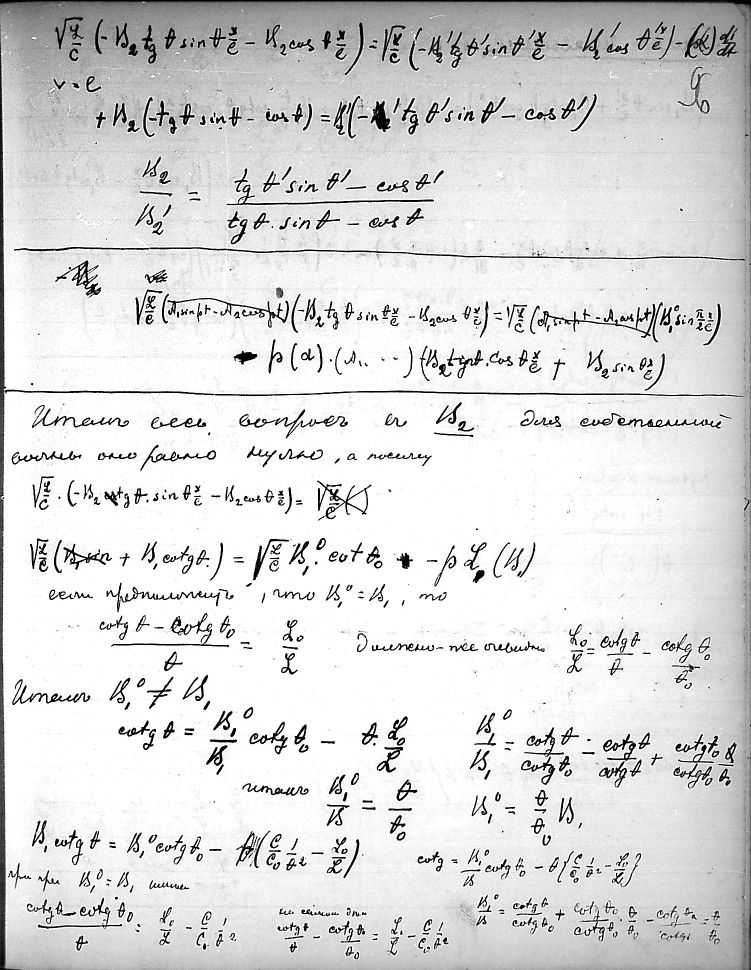 √(L/C) (-B₂ tg θ sin θ x/e - B₂ cos θ x/e) = √(L/C) (-B₂' tg θ' sin θ' x/e - B₂' cos θ' x/e) - di/dt
96
v = e
+ B₂ (-tg θ sin θ - cos θ) = B₂' (- tg θ' sin θ' - cos θ')
B₂/B₂' = (tg θ' sin θ' - cos θ')/(tg θ · sin θ - cos θ)
√(L/C) (A₁ sin pt - A₂ cos pt) (-B₂ tg θ sin θ x/e - B₂ cos θ x/e) = √(L/C) (A₁ sin pt - A₂ cos pt) (B₁⁰ sin π/2 x/e)
- p (α) · (A₁, ...) (B₂ tg θ · cos θ x/e + B₂ sin θ x/e)
Итакъ весь вопросъ въ B₂ для собственной
волны оно равно нулю, а посему
√(L/C) · (-B₂ cotg θ · sin θ x/e - B₂ cos θ x/e) = √(L/C) ( )
√(L/C) (B₁ sin + B₁ cotg θ) = √(L/C) B₁⁰ · cot θ₀ - p L₀ (B₁)
если предположить, что B₁⁰ = B₁, то
(cotg θ - cotg θ₀)/θ = L₀/L должно-же очевидно L₀/L = cotg θ/θ - cotg θ₀/θ₀
Итакъ B₁⁰ ≠ B₁
cotg θ = B₁⁰/B₁ cotg θ₀ - θ · L₀/L B₁⁰/B₁ = cotg θ/cotg θ₀ - cotg θ/cotg θ + cotg θ₀/cotg θ₀ θ/θ₀
итакъ B₁⁰/B = θ/θ₀ B₁⁰ = θ/θ₀ B₁
B₁ cotg θ = B₁⁰ cotg θ₀ - θ (C/C₀ 1/θ² - L₀/L) cotg = B₁⁰/B cotg θ₀ - θ {C/C₀ 1/θ² - L₀/L}
при B₁⁰ = B₁
(cotg θ - cotg θ₀)/θ = L₀/L - C/C₀ 1/θ² на самом деле cotg θ/θ - cotg θ₀/θ₀ = L₀/L - C/C₀ 1/θ² B₁⁰/B = cotg θ/cotg θ₀ + cotg θ₀/cotg θ₀ · θ/θ₀ - cotg θ/cotg θ = θ/θ₀